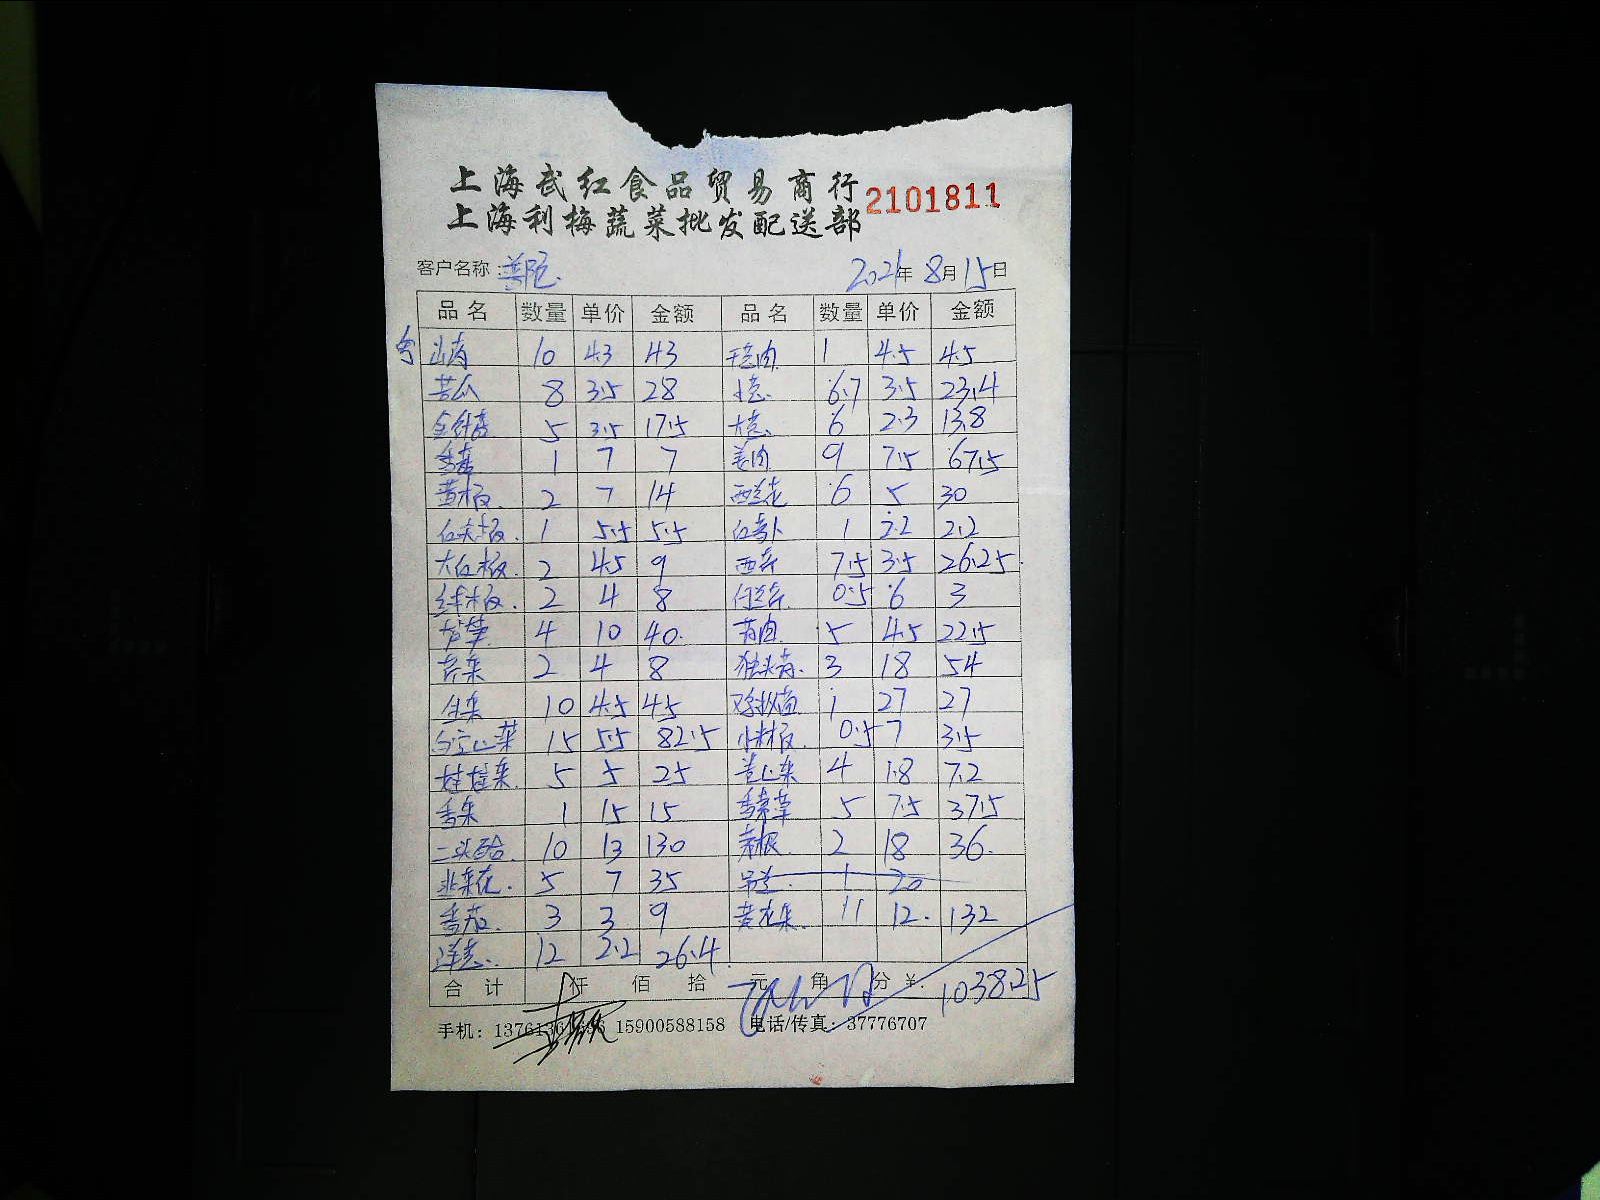 上海武红食品贸易商行
上海利梅蔬菜批发配送部 2101811
客户名称：普陀 2021年8月15日
品名 数量 单价 金额 品名 数量 单价 金额
10 4.3 43 1 4.5 4.5
苦瓜 8 3.5 28 小葱 6.7 3.5 23.4
金针菇 5 3.5 17.5 大葱 6 2.3 13.8
香菇 1 7 7 姜肉 9 7.5 67.5
黄椒 2 7 14 西兰花 6 5 30
红尖椒 1 5.5 5.5 白萝卜 1 2.2 2.2
大红椒 2 4.5 9 西芹 7.5 3.5 26.25
2 4 8 0.5 6 3
4 10 40 5 4.5 22.5
芹菜 2 4 8 独头蒜 3 18 54
生菜 10 4.5 45 1 27 27
15 5.5 82.5 小米椒 0.5 7 3.5
娃娃菜 5 5 25 卷心菜 4 1.8 7.2
香菜 1 15 15 5 7.5 37.5
10 13 130 2 18 36
韭菜花 5 7 35 1 20
番茄 3 3 9 11 12 132
洋葱 12 2.2 26.4
合计 仟 佰 拾 元 角 分 ¥: 1038.25
手机： 15900588158 电话/传真：37776707